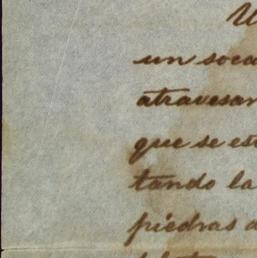 U
un soca
atravesar
que se est
tando la
piedras d